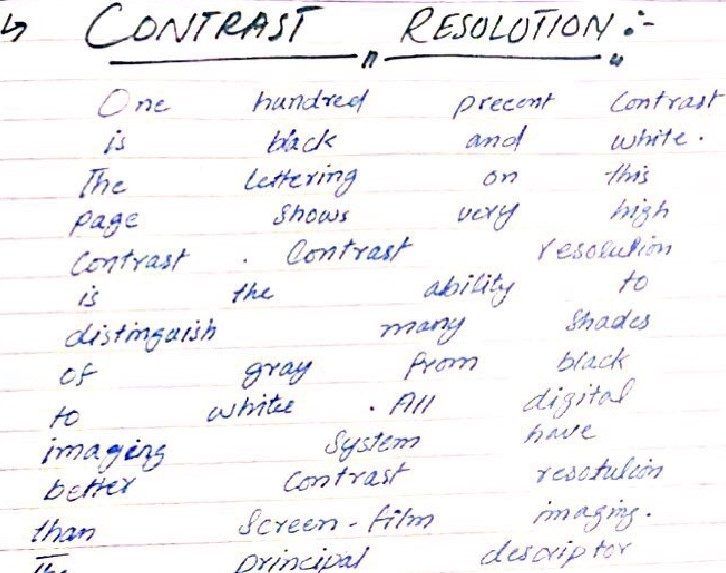 ↳ CONTRAST RESOLUTION :-
One hundred precent Contrast
is black and white.
The lettering on this
page shows very high
Contrast . Contrast resolution
is the ability to
distinguish many shades
of gray from black
to white . All digital
imaging System have
better Contrast resolution
than Screen-film imaging.
The principal descriptor